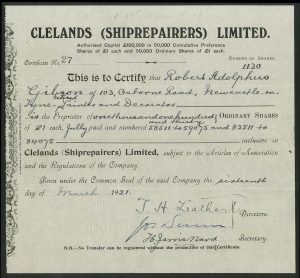 CLELANDS (SHIPREPAIRERS) LIMITED.
Authorised Capital £100,000 in 50,000 Cumulative Preference
Shares of £1 each and 50,000 Ordinary Shares of £1 each.
Certificate No. 27
NUMBER OF SHARES.
1130
This is to Certify that Robert Adolphus
Gibson of 103, Osborne Road, Newcastle on
Tyne Painter and Decorator
is the Proprietor of one thousand one hundred and thirty ORDINARY SHARES
of £1 each fully paid and numbered
inclusive in
Clelands (Shiprepairers) Limited, subject to the Articles of Association
and the Regulations of the Company.
Given under the Common Seal of the said Company the sixteenth
day of March 1921.
Directors.
Secretary.
N.B.—No Transfer can be registered without the production of this Certificate.